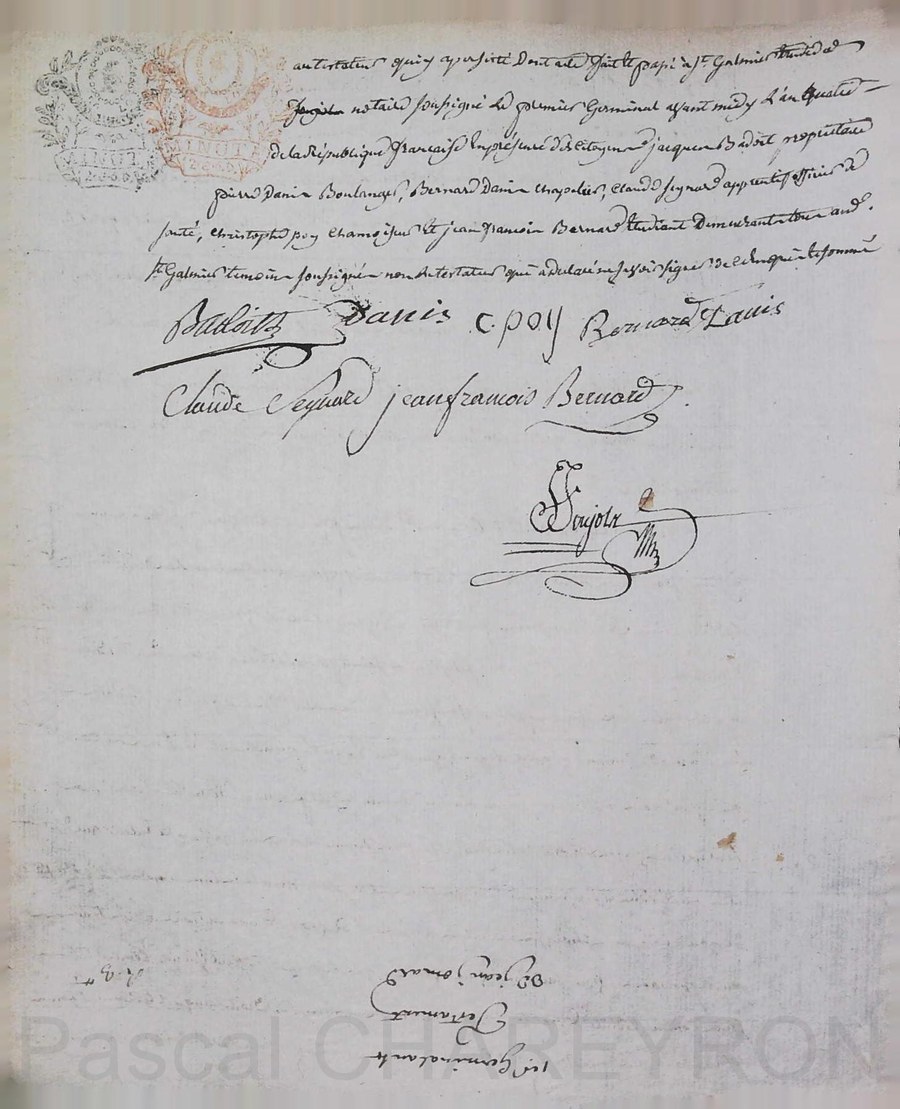 au testateur qui y a persisté Dont acte fait et passé a St. Galmier etude de
notaire soussigné Le premier Germinal avant midy L'an quatre
de la République française En présence des Citoyens jacques Badoil propriétaire
pierre Danis Boulanger, Bernard Danis chapelier, Claude Seynard apprentif officier de
santé, christophe poy chamoiseur et jean françois Bernard etudiant Demeurants tous aud.
St. Galmier temoins soussignés non le testateur qui a declaré ne savoir signer de ce enquis et sommé
Danis C. poy Bernard Danis
Claude Seynard jean francois Bernard
MINUTE
MINUTE
1er Germinal an 4
Testament
De jean jomard
Pascal CHAREYRON